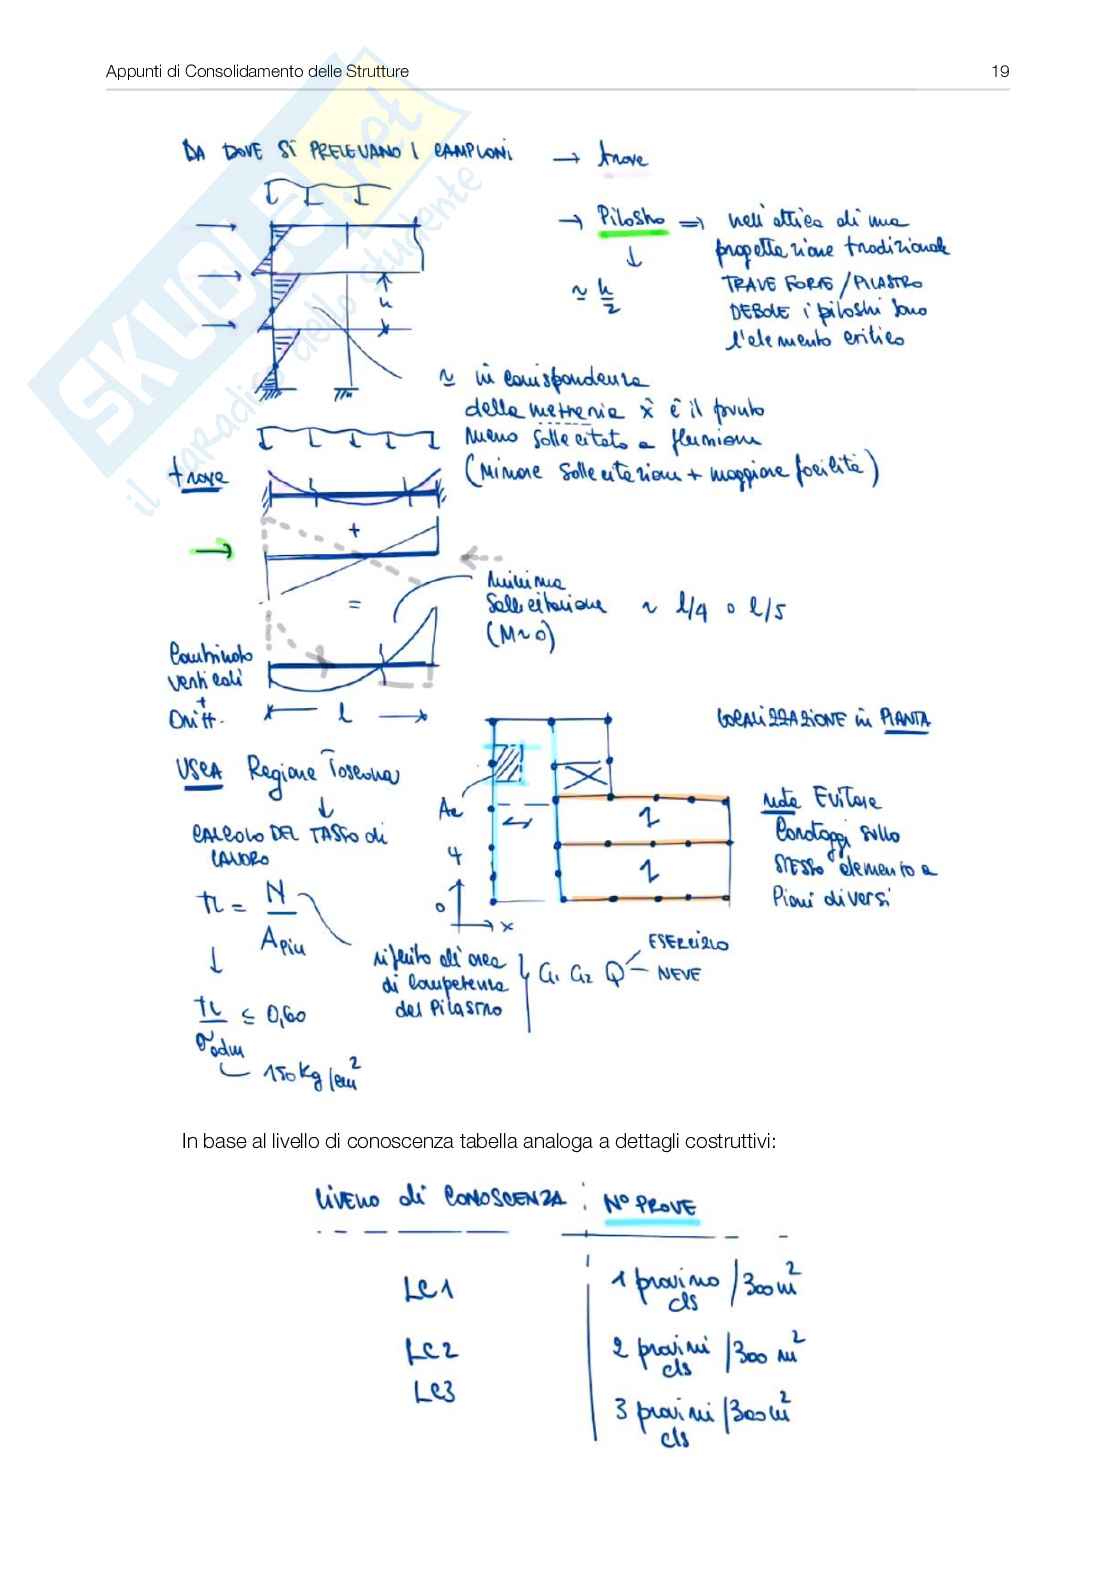 Appunti di Consolidamento delle Strutture 19
DA DOVE SI PRELEVANO I CAMPIONI → trave
→ Pilastro ⇒ nell'ottica di una
progettazione tradizionale
TRAVE FORTE/PILASTRO
DEBOLE i pilastri sono
l'elemento critico
↓
≃ h/2
h
≃ in corrispondenza
della mezzeria x è il punto
meno sollecitato a flessione
(minore sollecitazione + maggiore facilità)
trave
+
=
minima
sollecitazione ~ l/4 o l/5
(M~0)
Combinato
verticali
+
Orizz.
l
LOCALIZZAZIONE in PIANTA
USCA Regione Toscana
↓
CALCOLO DEL TASSO di
LAVORO
TL = N / Apil
↓
TL / σadm ≤ 0,60
150 Kg/cm²
Ac
4
0
x
nota Evitare
Carotaggi sullo
STESSO elemento a
Piani diversi
riferito all'area
di competenza
del PILASTRO
G1 G2 Q
ESERCIZIO
NEVE
In base al livello di conoscenza tabella analoga a dettagli costruttivi:
LIVELLO di CONOSCENZA N° PROVE
LC1 1 provino /300 m²
cls
LC2 2 provini /300 m²
cls
LC3 3 provini /300 m²
cls
SKUOLA.net
il paradiso dello studente